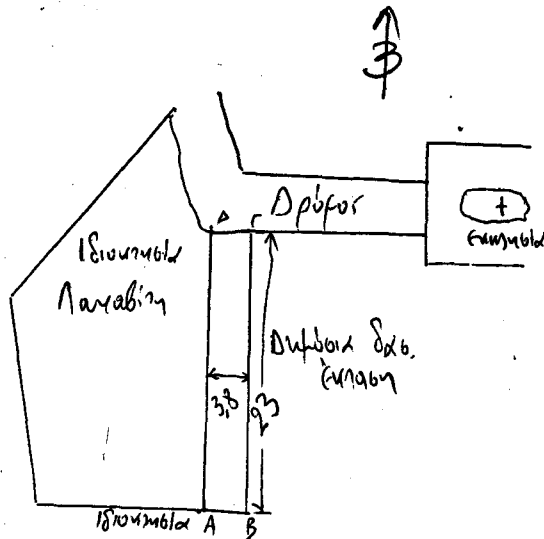 Β
Δ Γ Δρόμος
+
εκκλησία
Ιδιοκτησία
Δημόσια δασ.
έκταση
3,8
23
Ιδιοκτησία Α Β